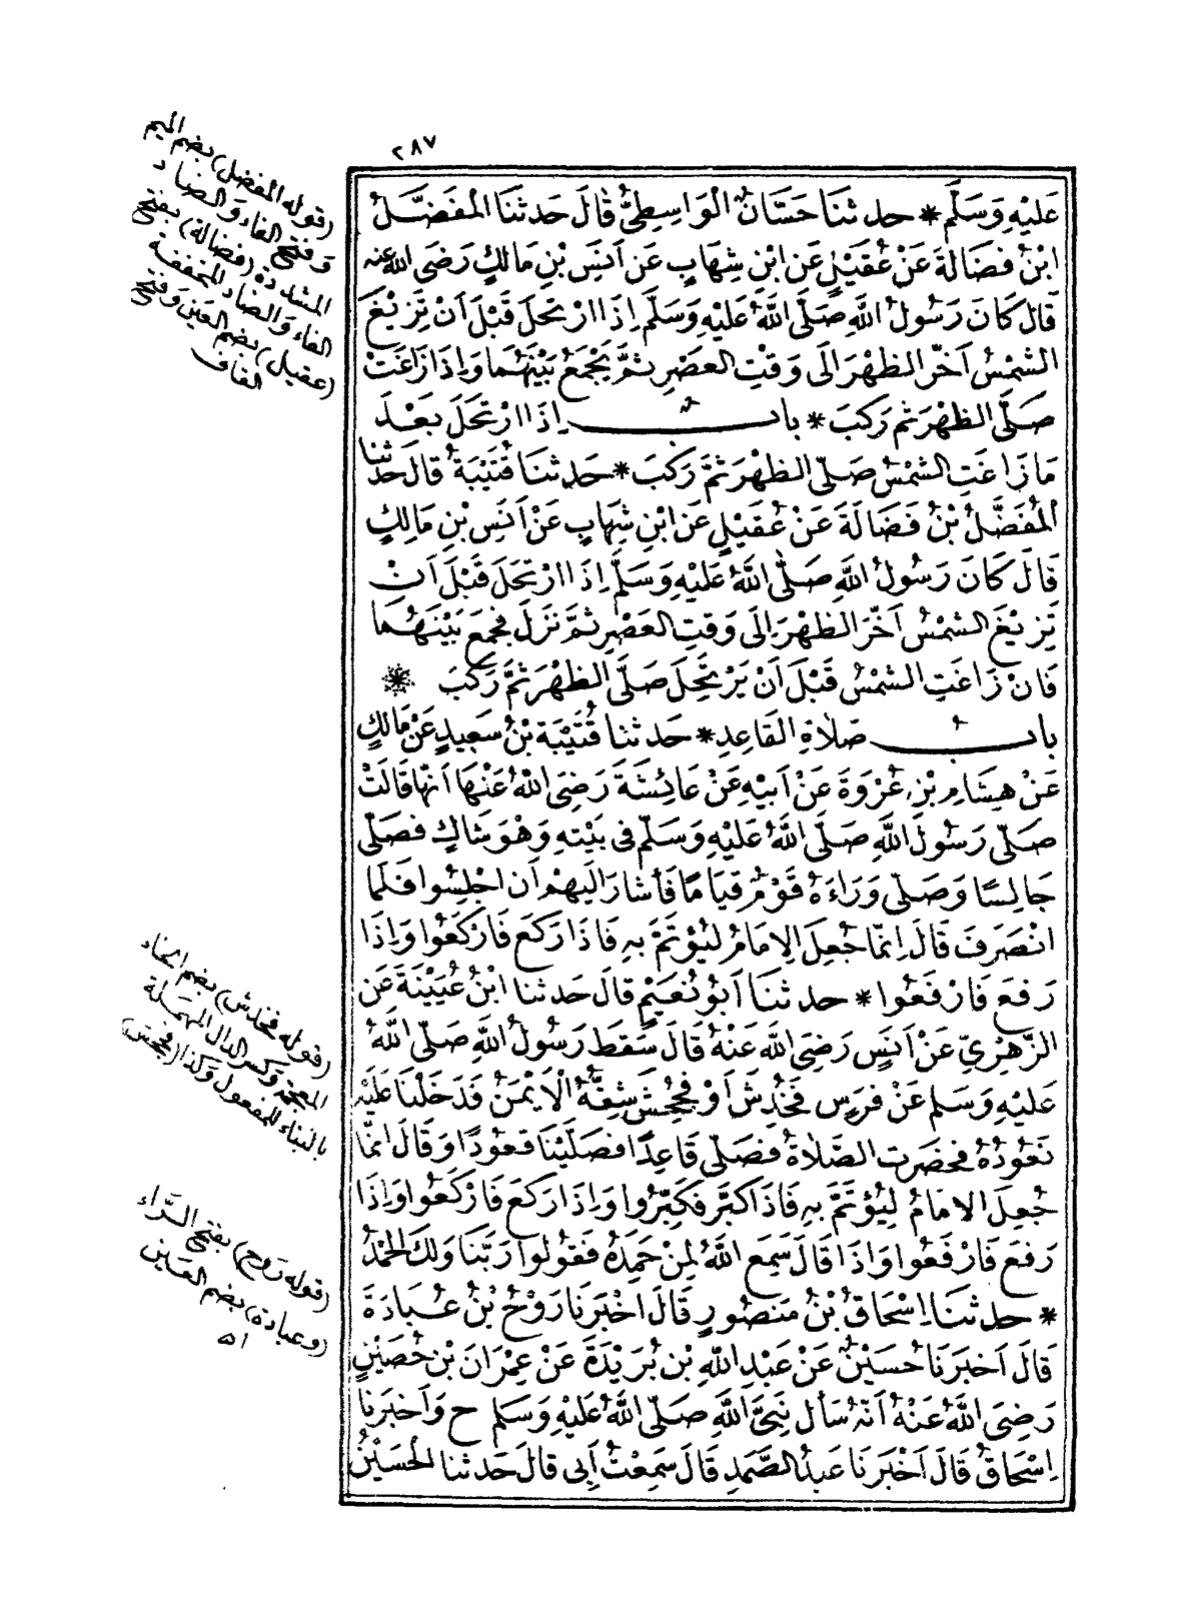 ٢٨٧
عَلَيْهِ وَسَلَّمَ * حدثنَا حَسَّانُ الْوَاسِطِىُّ قَالَ حَدثنَا المُفَضَّلُ
ابْنُ فَضَالَةَ عَنْ عُقَيْلٍ عَنِ ابْنِ شِهَابٍ عَن اَنَسِ بْنِ مَالِكٍ رَضَى اللهُ عنه
قَالَ كَانَ رَسُولُ اللّهِ صَلَّى اللّهُ عَلَيْهِ وَسَلَّمَ اِذَا ارْتَحَلَ قَبْلَ اَنْ تَزِيْغَ
الشَّمْسُ اَخَّرَ الظهْرَ اِلَى وَقْتِ العَصْرِ ثمَّ يَجْمَعُ بَيْنَهُمَا وَاِذَا زَاغَتْ
صَلَّى الظهْرَ ثم رَكبَ * بابُ اِذَا ارْتَحَلَ بَعْدَ
مَا زَاغَتِ الشَّمْسُ صَلَّى الظهْرَ ثمَّ رَكَبَ * حَدثنَا قُتَيْبَةُ قالَ حَدثنا
المُفَضَّلُ بْنُ فَضَالَةَ عَنْ عُقَيْلٍ عَنِ ابْنِ شِهَابٍ عَنْ اَنَسِ بْنِ مَالِكٍ
قَالَ كَانَ رَسُولُ اللّهِ صَلَّى اللّهُ عَلَيْهِ وَسَلَّمَ اِذَا ارْتَحَلَ قَبْلَ اَنْ
تَزِيْغَ الشَّمْسُ اَخَّرَ الظهْرَ اِلَى وَقتِ العَصْرِ ثمَّ نَزَلَ فجمَعَ بَيْنَهُمَا
فَانْ زَاغَتِ الشَّمْسُ قَبْلَ اَنْ يَرْتَحِلَ صَلَّى الظهْرَ ثمَّ رَكَبَ *
بابُ صَلاَةِ القَاعِدِ * حَدثنا قُتَيْبَة بْنُ سَعِيدٍ عَنْ مَالِكٍ
عَنْ هِشَامِ بْنِ عُرْوَةَ عَنْ اَبيْهِ عَنْ عَائِشَةَ رَضِىَ اللهُ عَنْهَا اَنَّهَا قَالَتْ
صَلّى رَسُولُ اللّهِ صَلَّى اللّهُ عَلَيْهِ وَسَلَّمَ فى بَيْتهِ وَهْوَ شَاكٍ فصَلّى
جَالِسًا وَصَلّى وَرَاءَهُ قَوْمٌ قِيَامًا فَأَشَارَ اِلَيهِمْ اَن اجْلِسُوا فَلَمَا
انْصَرَفَ قَالَ اِنَمّا جُعِلَ الاِمَامُ لِيُؤتَمَّ بهِ فَاذَا رَكَعَ فَارْكَعُوا وَاِذَا
رَفعَ فَارْفَعُوا * حدثنَا اَبُو نُعَيْمٍ قالَ حَدثنا ابْنُ عُيَيْنَةَ عَن
الزّهْرِىّ عَنْ اَنَسٍ رَضِىَ اللّه عَنْهُ قالَ سَقَط رَسُولُ اللّهِ صَلّى اللّهُ
عَليْهِ وَسَلم عَنْ فرَسٍ فخُدِشَ اَوْ فجُحِشَ شِقّهُ الْاَيْمَنُ فَدَخَلْنا عَلَيْهِ
نَعُودُهُ فحَضَرت الصَّلَاةُ فصَلّى قَاعِدًا فصَلّيْنا قعُودًا وَقَالَ انمّا
جُعِلَ الاِمَامُ لِيُؤْتَمَّ بهِ فَاذَا كَبَّرَ فكَبِّرُوا وَاِذَا رَكعَ فَارْكَعُوا وَاِذَا
رَفعَ فَارْفَعُوا وَاِذَا قَالَ سَمِعَ اللّهُ لِمنْ حَمِدَهُ فَقُولُوا رَبّنَا وَلَكَ الحَمْدُ
* حدثنَا اِسْحَاقُ بْنُ مَنصُورٍ قَالَ اَخْبَرَنَا رَوْحُ بْنُ عُبَادَةَ
قَالَ اَخبَرَنَا حُسَيْنٌ عَنْ عَبْدِ اللّهِ بْن بُرَيْدَةَ عَنْ عِمْرَانَ بْن حُصَيْنٍ
رَضِىَ اللّهُ عَنْهُ اَنّهُ سَأل نَبِىَّ اللّهِ صَلّى اللّهُ عَليْهِ وَسَلم ح وَاَخبَرَنا
اِسْحَاقُ قَالَ اَخْبَرَنَا عَبدُ الصَّمَدِ قَالَ سَمِعْتُ اَبى قالَ حَدثنا الْحُسَيْنُ
(قوله المفضل) بضم الميم
وَفتح الفاء وَالضاد
المشددة (فضالة) بفتح
الفاء وَالضاد المخففة
(عقيل) بضم العَين وَفتح
القاف
(قوله فخدش) بضم الخاء
المعجمة وَكسر الدال المهملة
بالبناء للمفعول وَكذا (فجحش)
(قوله رَوح) بفتح الرَّاء
(وعبادة) بضم العَين
اه